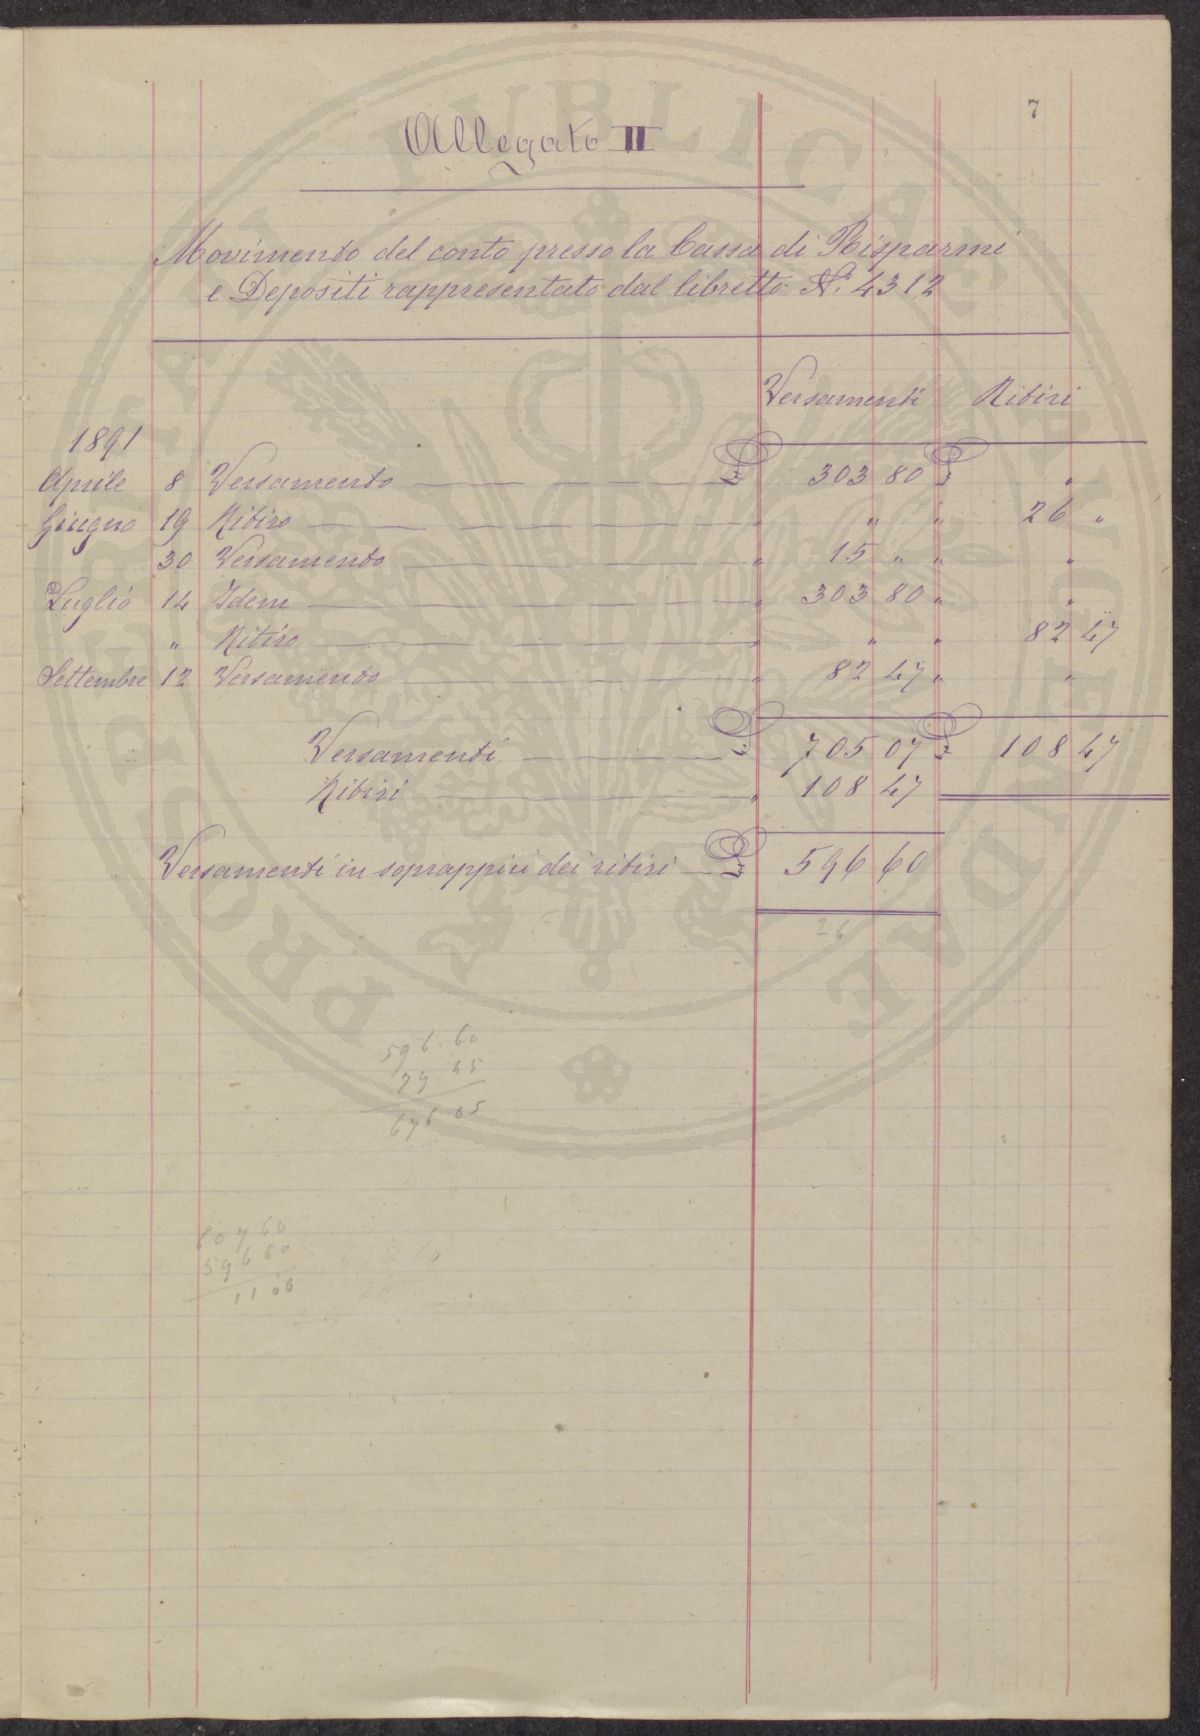 7
Allegato II
Movimento del conto presso la Cassa di Risparmi
e Depositi rappresentato dal libretto N.° 4312
Versamenti Ritiri
1891
Aprile 8 Versamento £ 303 80 £ "
Giugno 19 Ritiro " " " 26 "
30 Versamento " 15 " " "
Luglio 14 Idem " 303 80 " "
" Ritiro " " " 82 27
Settembre 12 Versamento " 82 27 " "
Versamenti £ 705 07 £ 108 47
Ritiri " 108 47
Versamenti in soprappiù dei ritiri £ 596 60
26
596.60
79 45
676 05
607 60
596 60
11 00
PROSPERITATI PUBLICAE AUGENDAE